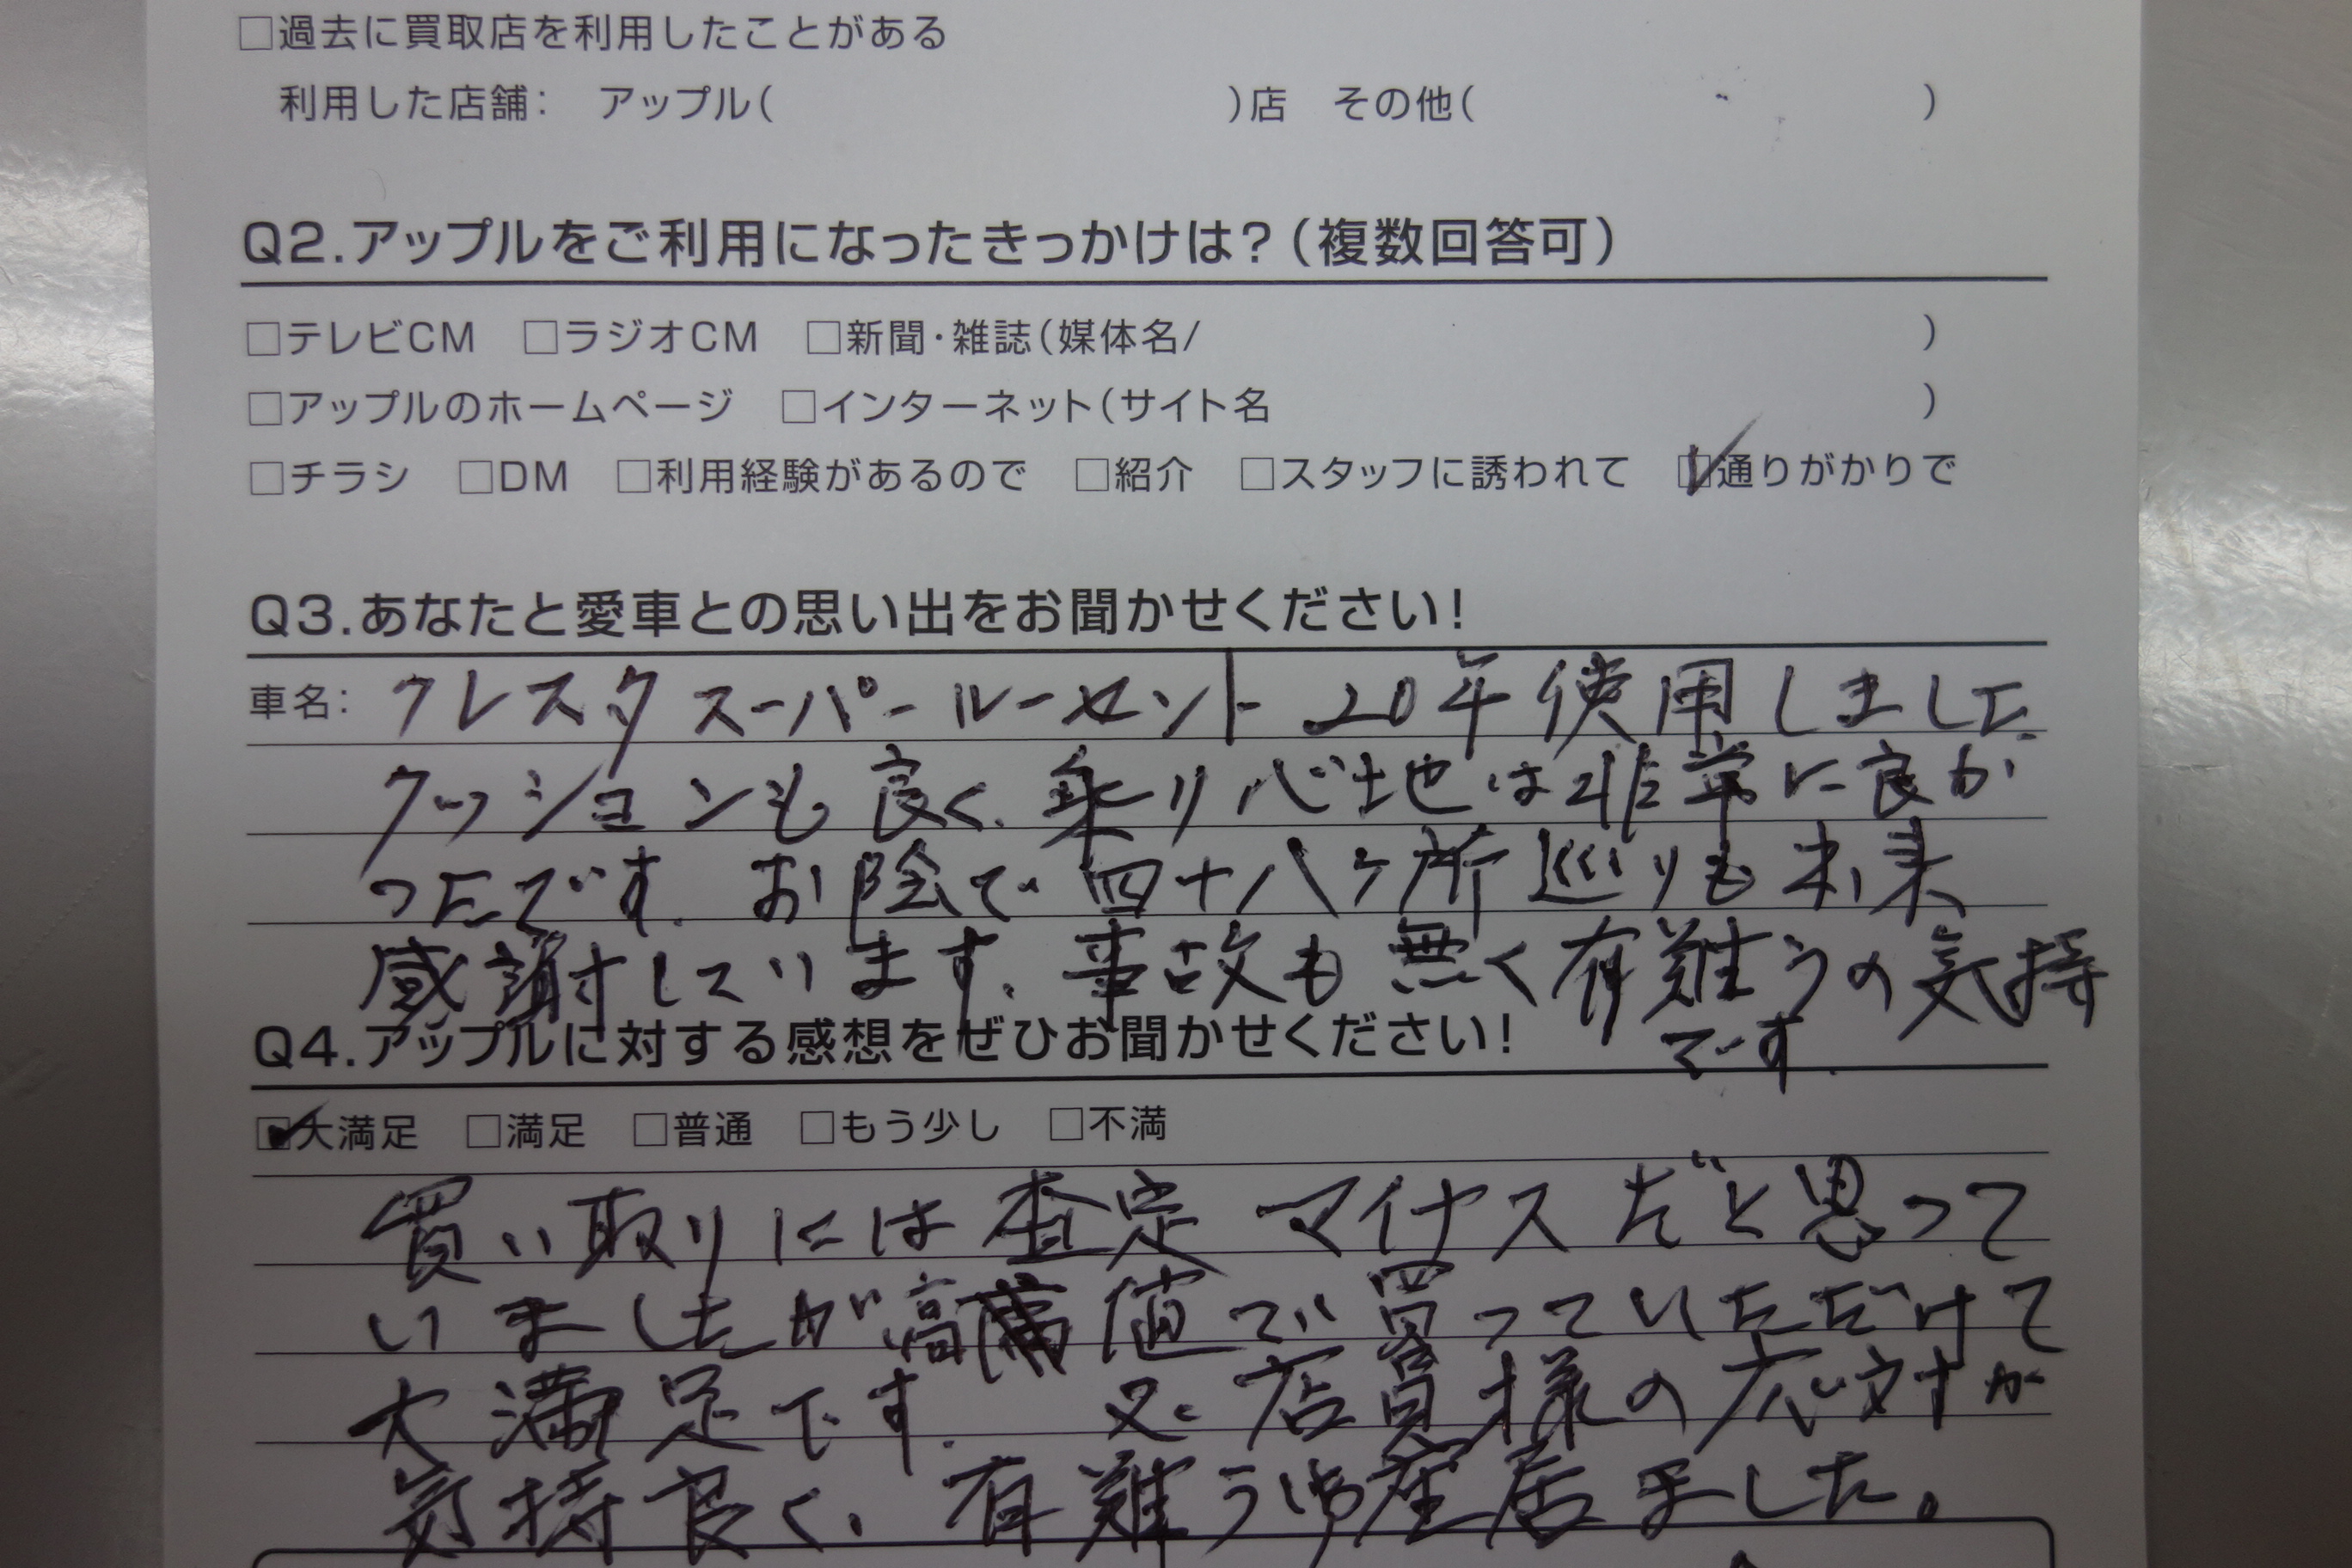 □過去に買取店を利用したことがある
利用した店舗： アップル( )店 その他( )
Q2.アップルをご利用になったきっかけは?(複数回答可)
□テレビCM □ラジオCM □新聞・雑誌(媒体名/ )
□アップルのホームページ □インターネット(サイト名 )
□チラシ □DM □利用経験があるので □紹介 □スタッフに誘われて ☑通りがかりで
Q3.あなたと愛車との思い出をお聞かせください!
車名： クレスタ スーパールーセント 20年使用しました
クッションも良く、乗り心地は非常に良か
ったです。お陰で四十八ヶ所巡りも出来
感謝しています。事故も無く有難うの気持
です。
Q4.アップルに対する感想をぜひお聞かせください!
☑大満足 □満足 □普通 □もう少し □不満
買い取りには査定マイナスだと思って
いましたが高値で買っていただけて
大満足です。 又、店員様の応対が
気持良く、有難う御座居ました。